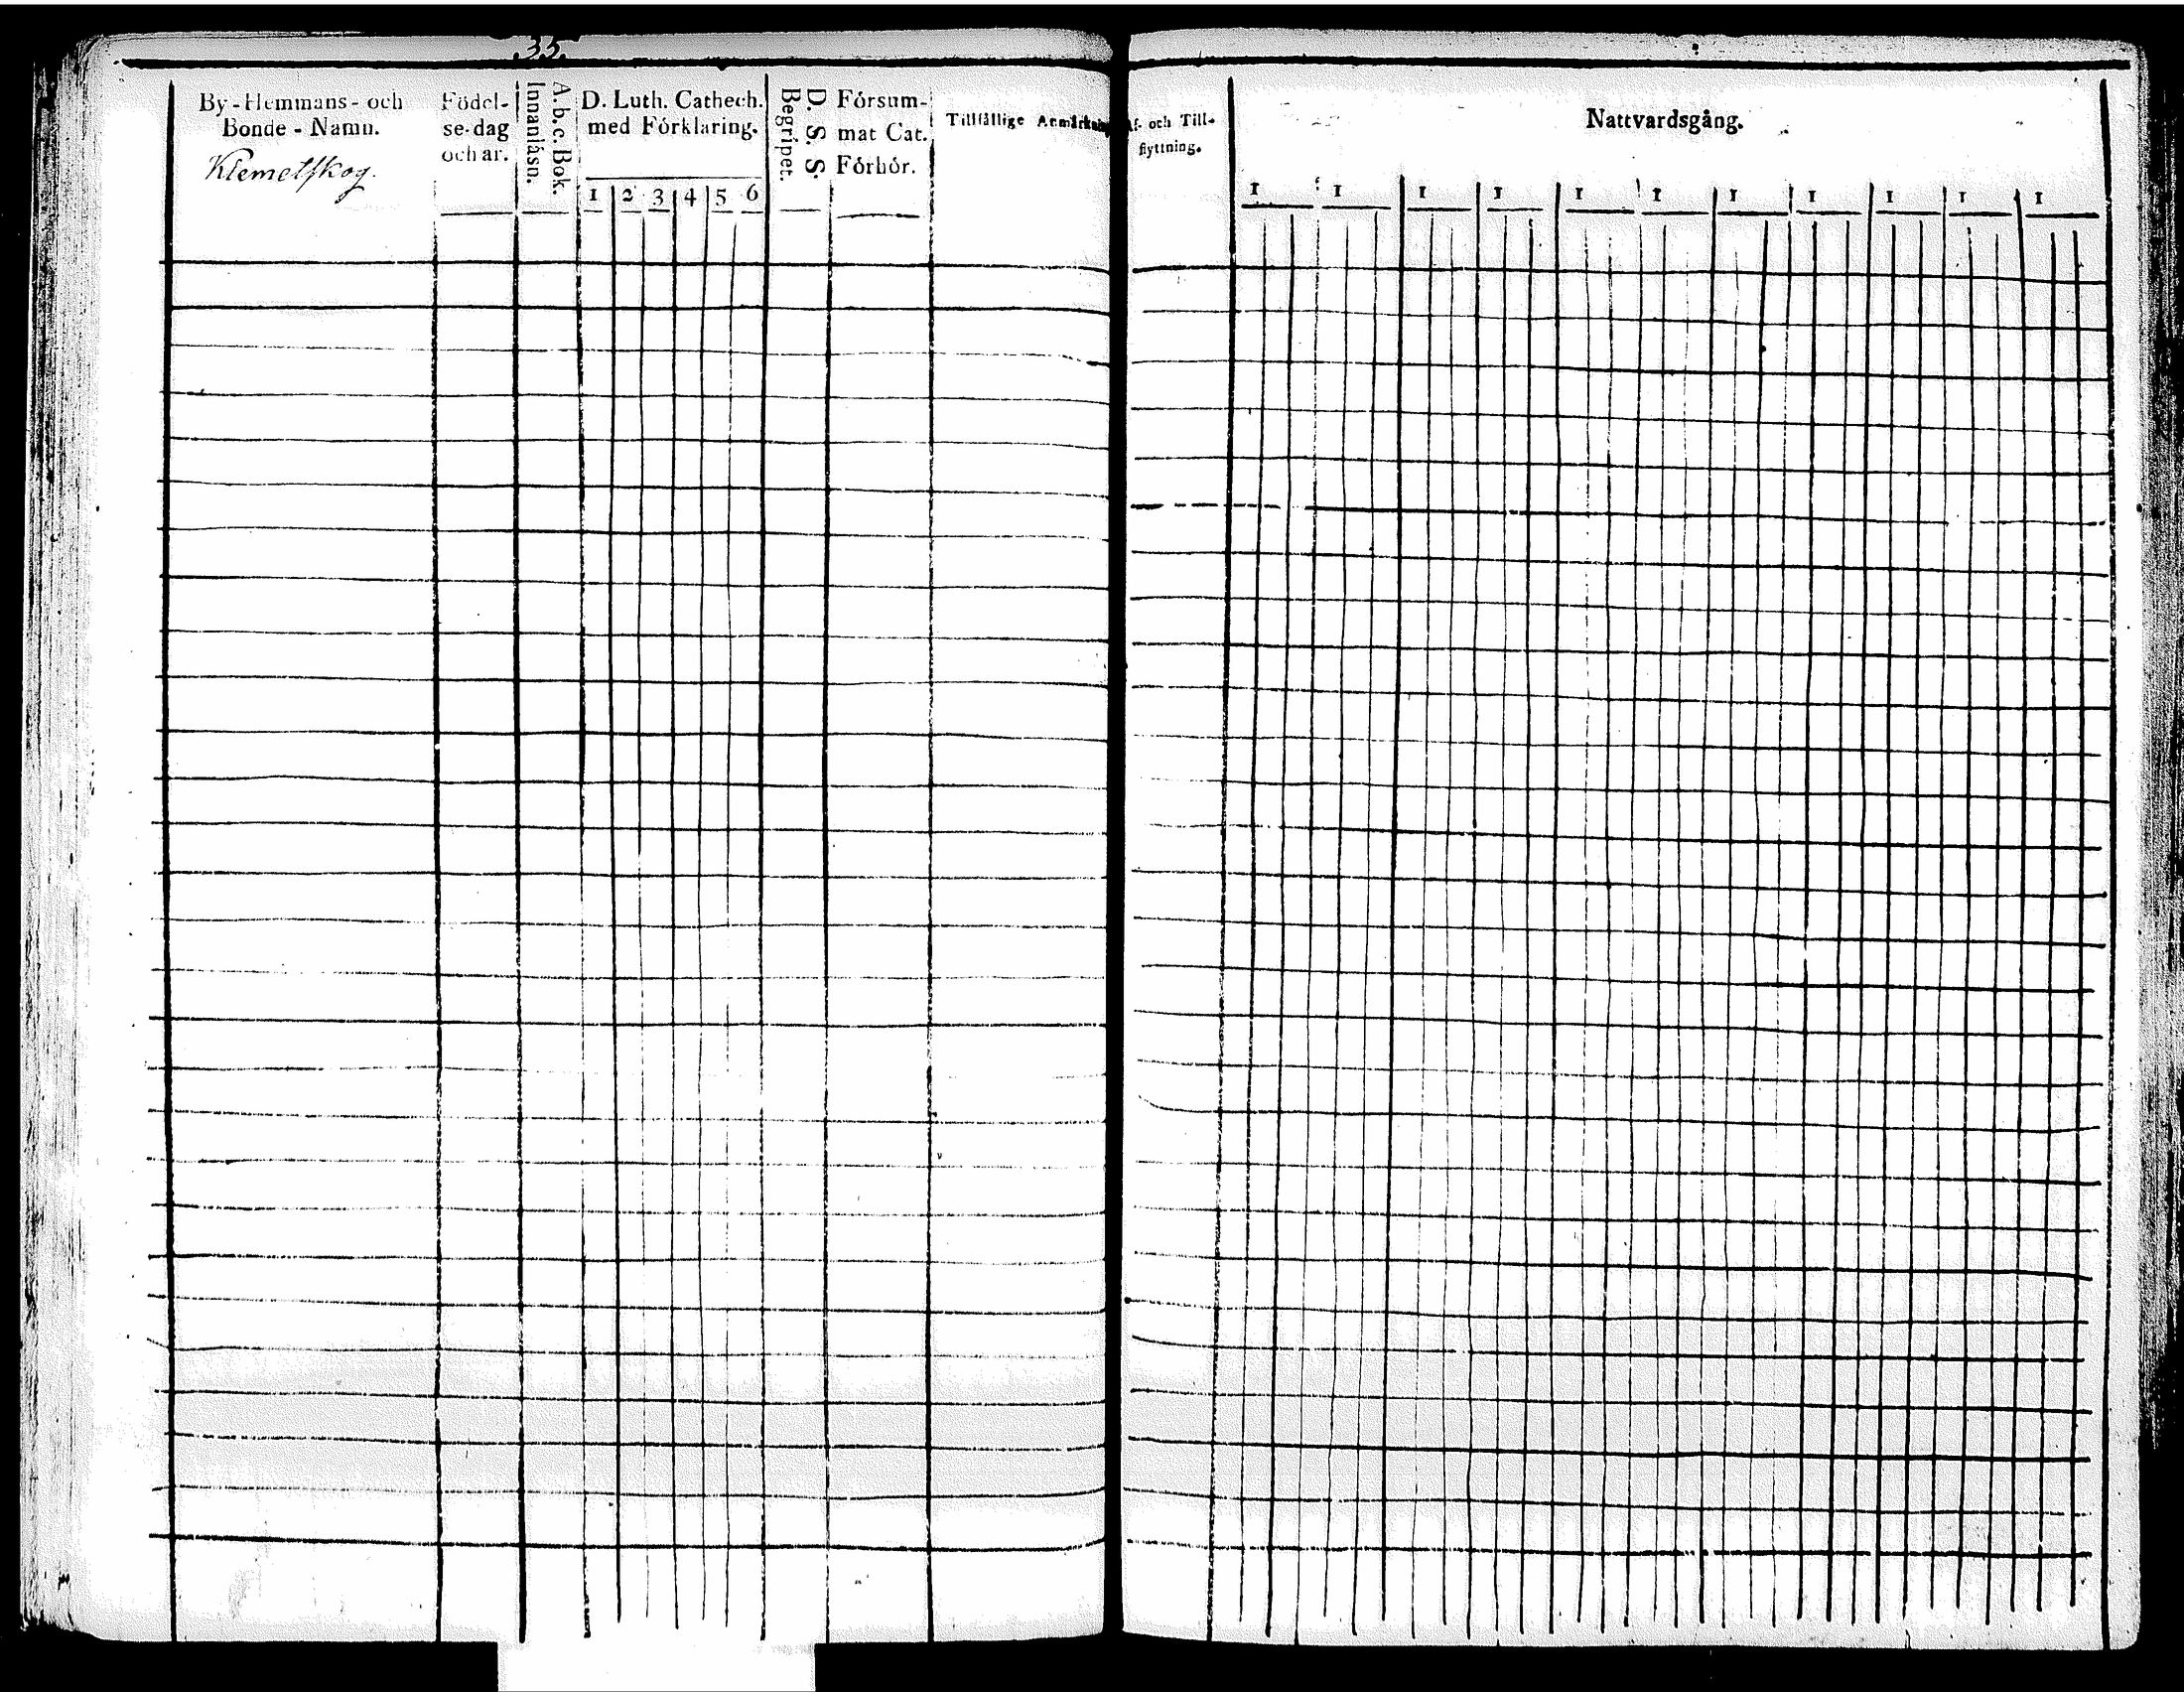 33.
By-Hemmans- och
Bonde-Namn.
Klemetskog.
Födel-
se-dag
och år.
A. b. c. Bok.
Innanläsn.
D. Luth. Cathech.
med Förklaring.
1 2 3 4 5 6
D. S. S.
Begripet.
Försum-
mat Cat.
Förhör.
Tillfällige Anmärkning
Af- och Till-
flyttning.
Nattvardsgång.
1 1 1 1 1 1 1 1 1 1 1